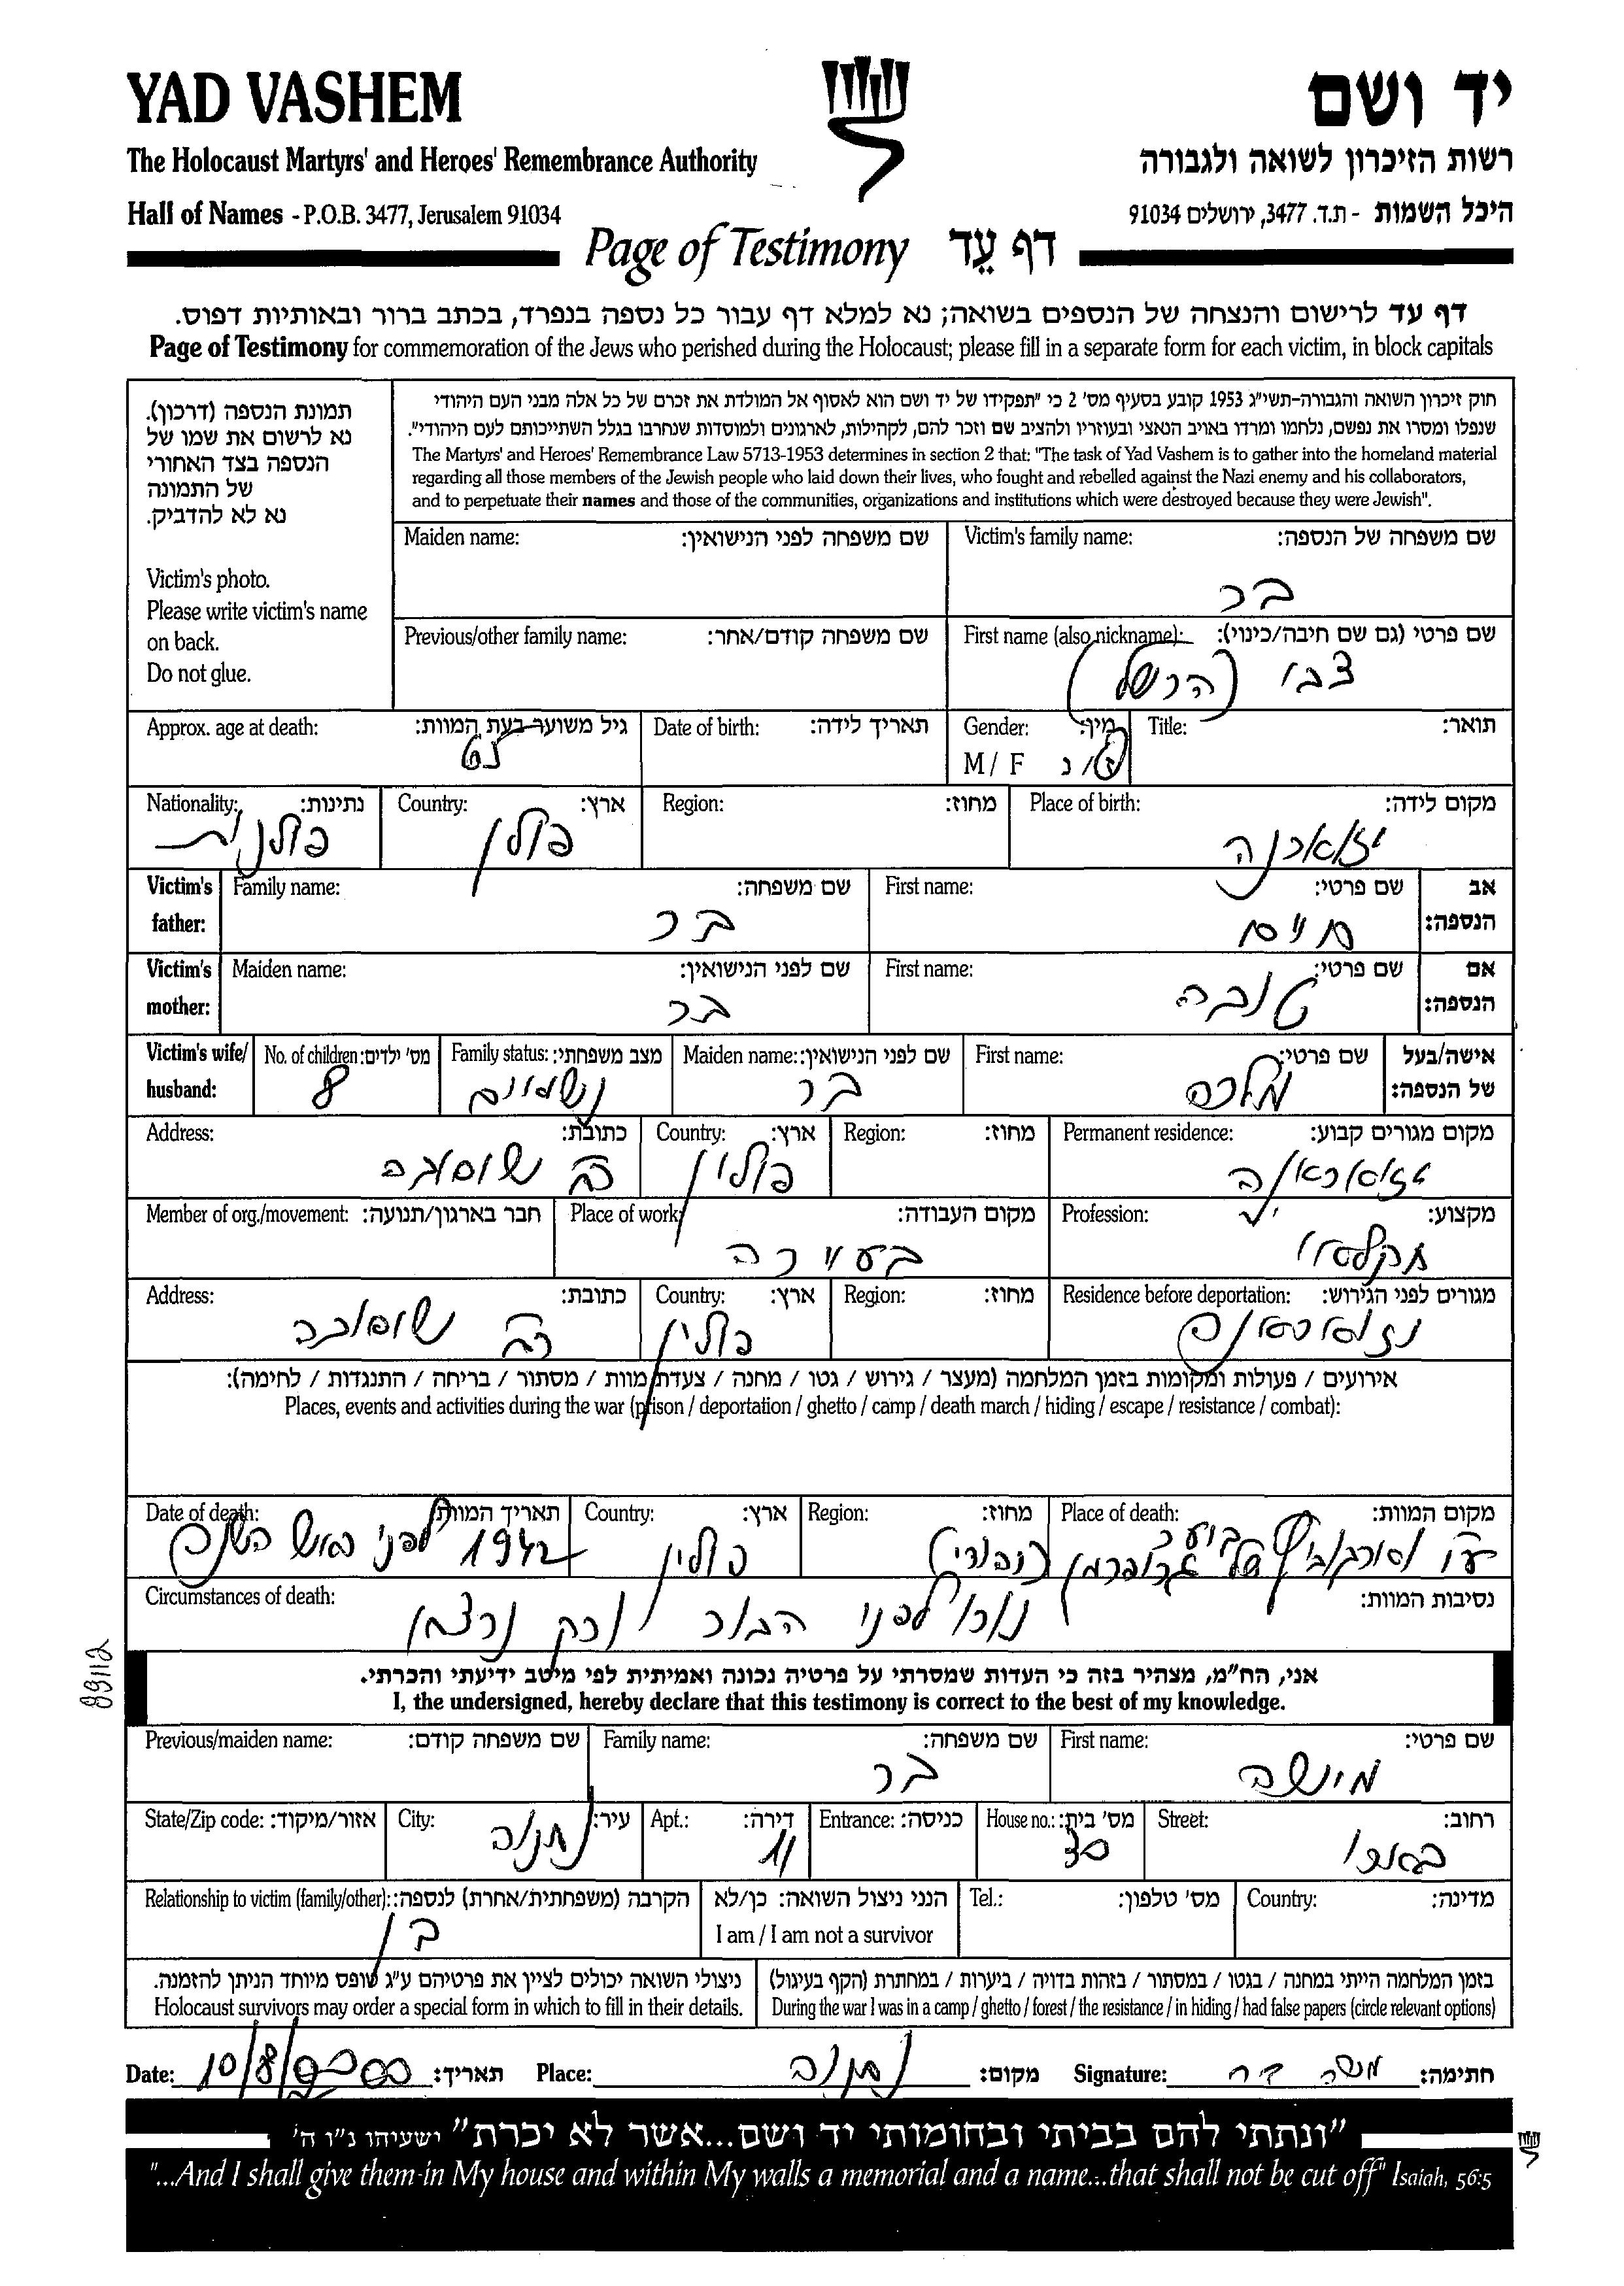 YAD VASHEM
יד ושם
The Holocaust Martyrs' and Heroes' Remembrance Authority
רשות הזיכרון לשואה ולגבורה
Hall of Names - P.O.B. 3477, Jerusalem 91034
היכל השמות - ת.ד. 3477, ירושלים 91034
Page of Testimony דף עֵד
דף עד לרישום והנצחה של הנספים בשואה; נא למלא דף עבור כל נספה בנפרד, בכתב ברור ובאותיות דפוס.
Page of Testimony for commemoration of the Jews who perished during the Holocaust; please fill in a separate form for each victim, in block capitals
תמונת הנספה (דרכון).
נא לרשום את שמו של
הנספה בצד האחורי
של התמונה
נא לא להדביק.
Victim's photo.
Please write victim's name
on back.
Do not glue.
חוק זיכרון השואה והגבורה-תשי"ג 1953 קובע בסעיף מס' 2 כי "תפקידו של יד ושם הוא לאסוף אל המולדת את זכרם של כל אלה מבני העם היהודי
שנפלו ומסרו את נפשם, נלחמו ומרדו באויב הנאצי ובעוזריו ולהציב שם וזכר להם, לקהילות, לארגונים ולמוסדות שנחרבו בגלל השתייכותם לעם היהודי".
The Martyrs' and Heroes' Remembrance Law 5713-1953 determines in section 2 that: "The task of Yad Vashem is to gather into the homeland material
regarding all those members of the Jewish people who laid down their lives, who fought and rebelled against the Nazi enemy and his collaborators,
and to perpetuate their names and those of the communities, organizations and institutions which were destroyed because they were Jewish".
Victim's family name: שם משפחה של הנספה:
בר
Maiden name: שם משפחה לפני הנישואין:
First name (also nickname): שם פרטי (גם שם חיבה/כינוי):
צבי (הרשל)
Previous/other family name: שם משפחה קודם/אחר:
Title: תואר:
Gender: מין:
M / F ז / נ
Date of birth: תאריך לידה:
Approx. age at death: גיל משוער בעת המוות:
Place of birth: מקום לידה:
Region: מחוז:
Country: ארץ:
פולין
Nationality: נתינות:
פולנית
Victim's father: אב הנספה:
First name: שם פרטי:
חיים
Family name: שם משפחה:
בר
Victim's mother: אם הנספה:
First name: שם פרטי:
טובה
Maiden name: שם לפני הנישואין:
בר
Victim's wife/husband: אישה/בעל של הנספה:
First name: שם פרטי:
מלכה
Maiden name: שם לפני הנישואין:
בר
Family status: מצב משפחתי:
נשואים
No. of children: מס' ילדים:
8
Permanent residence: מקום מגורים קבוע:
Region: מחוז:
Country: ארץ:
פולין
Address: כתובת:
Profession: מקצוע:
חקלאי
Place of work: מקום העבודה:
בעיירה
Member of org./movement: חבר בארגון/תנועה:
Residence before deportation: מגורים לפני הגירוש:
Region: מחוז:
Country: ארץ:
פולין
Address: כתובת:
אירועים / פעולות ומקומות בזמן המלחמה (מעצר / גירוש / גטו / מחנה / צעדת מוות / מסתור / בריחה / התנגדות / לחימה):
Places, events and activities during the war (prison / deportation / ghetto / camp / death march / hiding / escape / resistance / combat):
Place of death: מקום המוות:
Region: מחוז:
Country: ארץ:
פולין
Date of death: תאריך המוות:
1942 לפני ראש השנה
Circumstances of death: נסיבות המוות:
נורו לפני הבור וכך נרצחו
89112
אני, הח"מ, מצהיר בזה כי העדות שמסרתי על פרטיה נכונה ואמיתית לפי מיטב ידיעתי והכרתי.
I, the undersigned, hereby declare that this testimony is correct to the best of my knowledge.
First name: שם פרטי:
מישה
Family name: שם משפחה:
בר
Previous/maiden name: שם משפחה קודם:
Street: רחוב:
House no.: מס' בית:
Entrance: כניסה:
Apt.: דירה:
11
City: עיר:
נתניה
State/Zip code: אזור/מיקוד:
Country: מדינה:
Tel.: מס' טלפון:
הנני ניצול השואה: כן/לא
I am / I am not a survivor
Relationship to victim (family/other): הקרבה (משפחתית/אחרת) לנספה:
בן
בזמן המלחמה הייתי במחנה / בגטו / במסתור / בזהות בדויה / ביערות / במחתרת (הקף בעיגול)
During the war I was in a camp / ghetto / forest / the resistance / in hiding / had false papers (circle relevant options)
ניצולי השואה יכולים לציין את פרטיהם ע"ג טופס מיוחד הניתן להזמנה.
Holocaust survivors may order a special form in which to fill in their details.
Date: 10/8/2000 תאריך:
Place: נתניה מקום:
Signature: משה בר חתימה:
"ונתתי להם בביתי ובחומותי יד ושם...אשר לא יכרת" ישעיהו נ"ו ה'
"...And I shall give them in My house and within My walls a memorial and a name...that shall not be cut off" Isaiah, 56:5